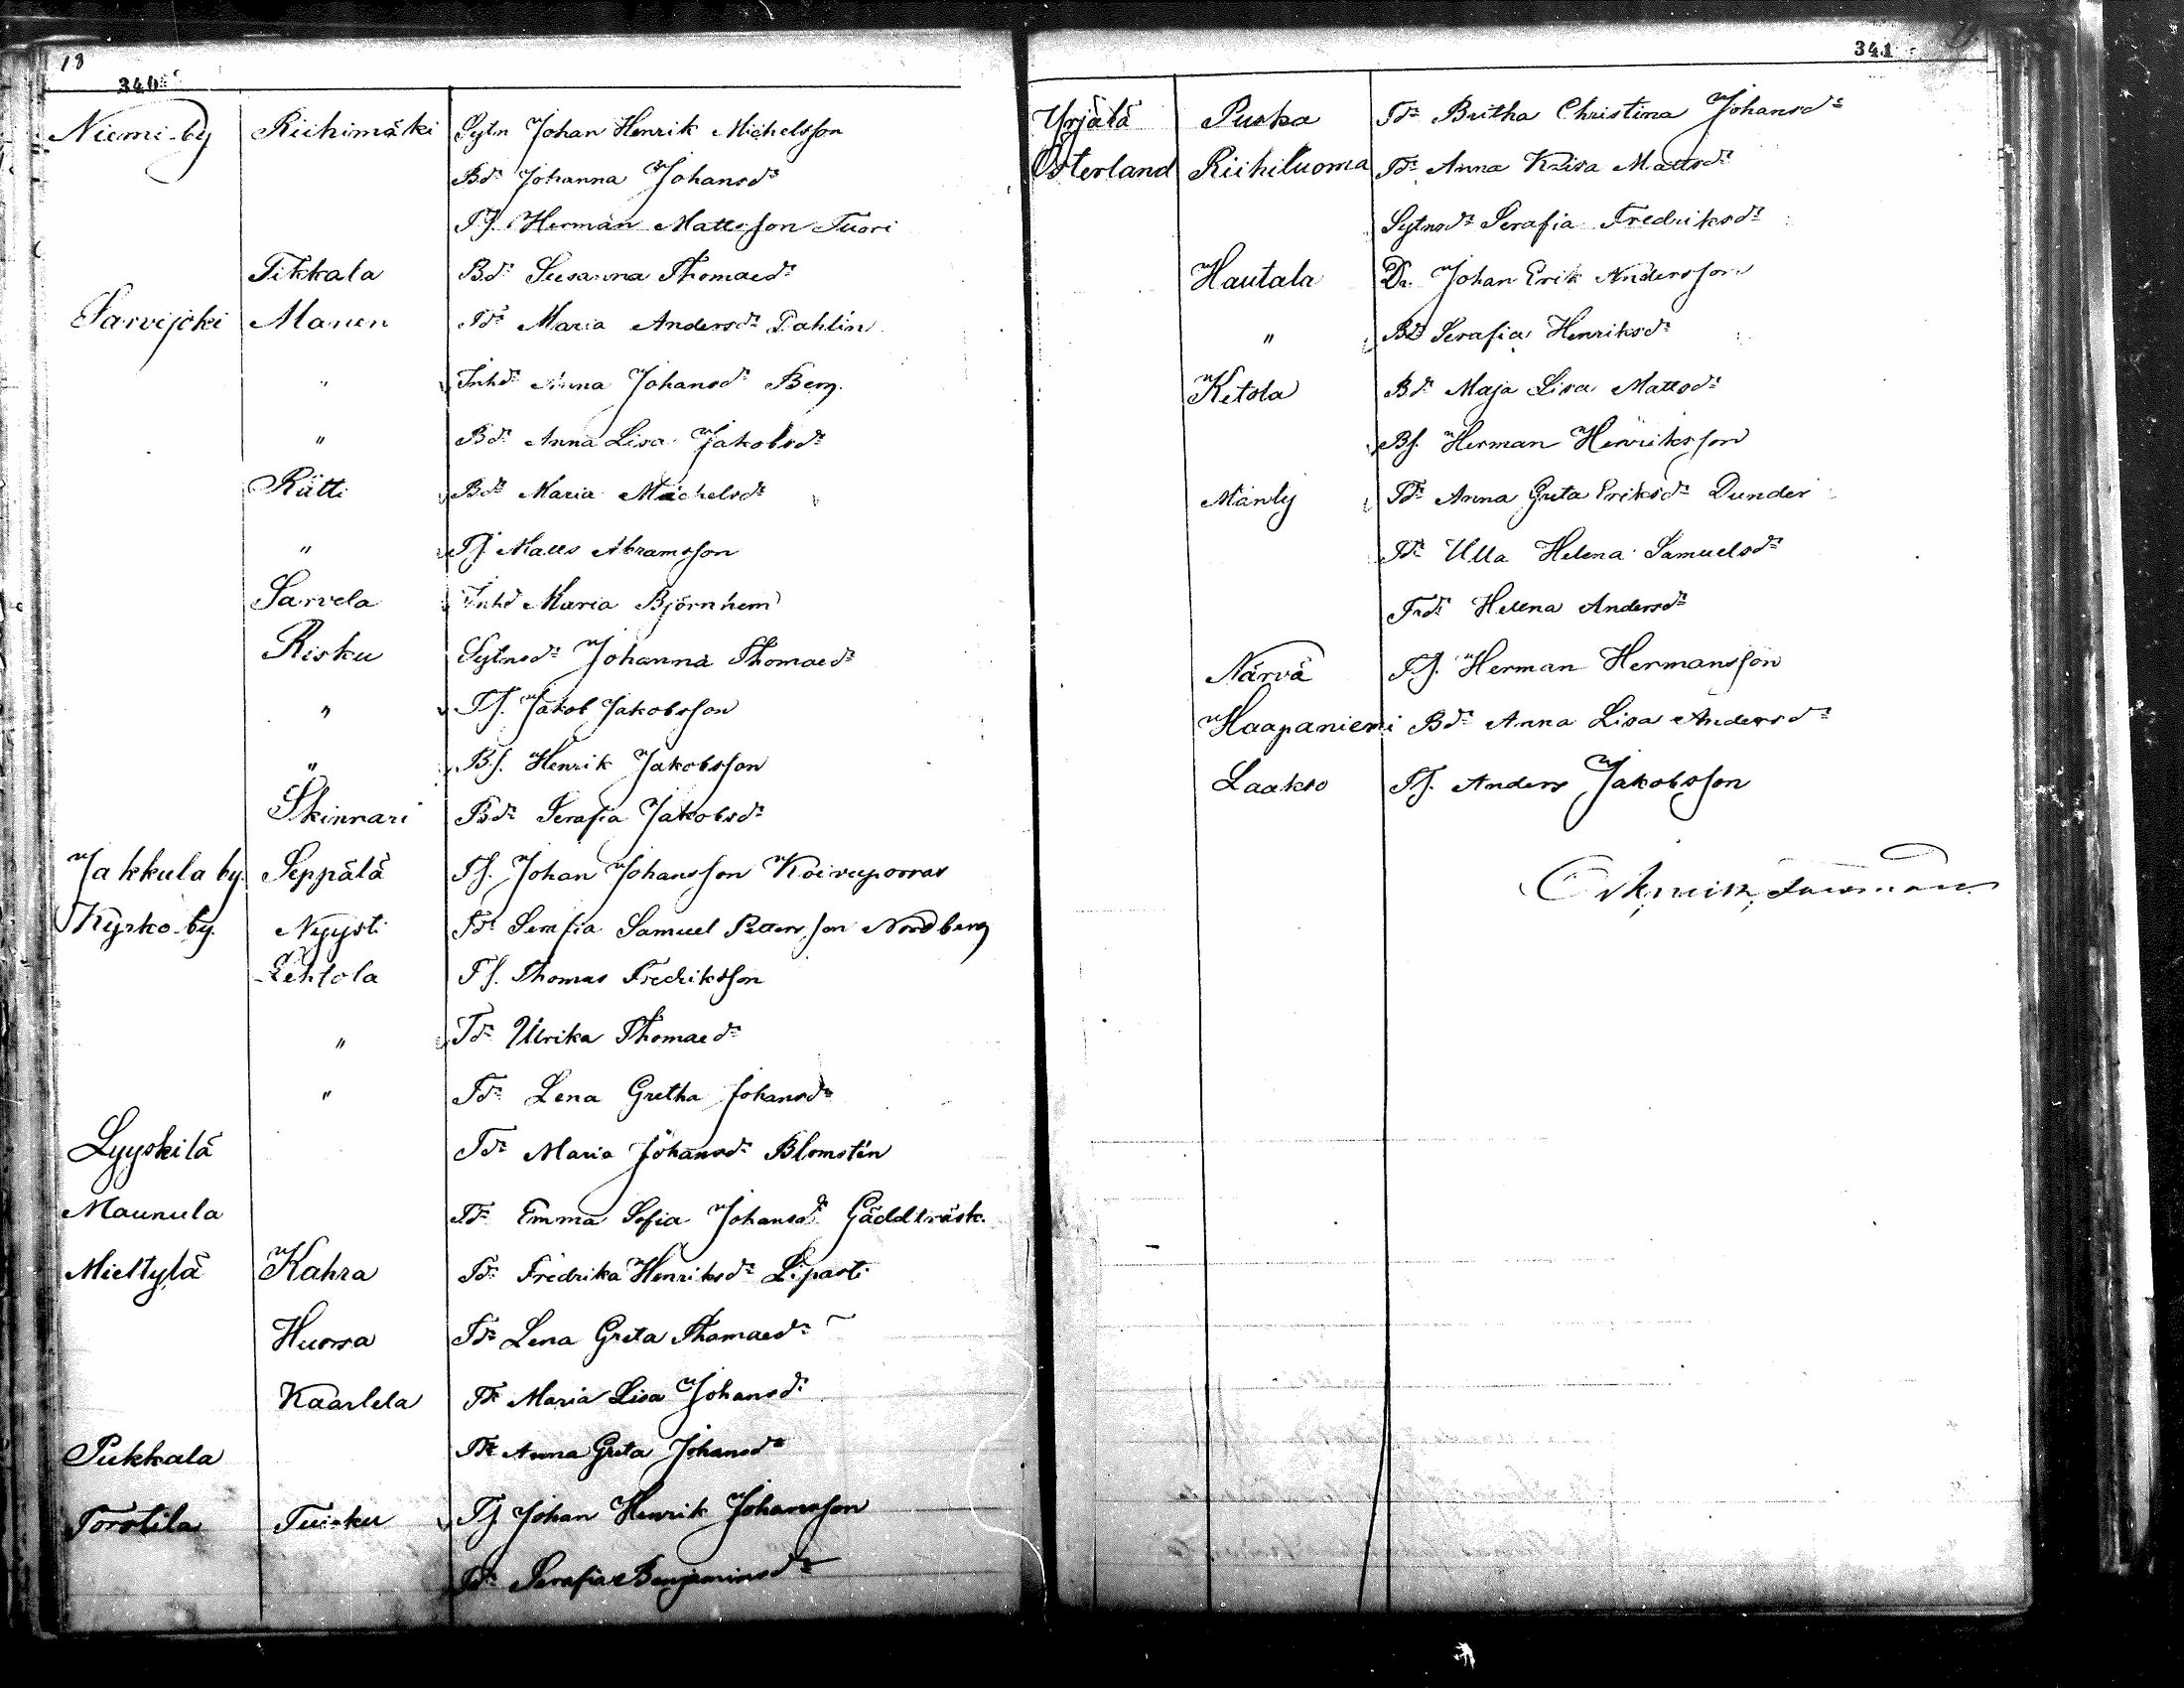 18
340
Niemi-by Riihimäki Sytn Johan Henrik Michelsson
Bdr Johanna Johansdr
Tj. Herman Mattsson Tuori
Tikkala Bdr Susanna Thomaedr
Sarvijoki Manen Tdr Maria Andersdr Dahlin
" Inhdr Anna Johansdr Berg.
" Bdr Anna Lisa Jakobsdr
Rätti Bdr Maria Michelsdr
" Tj. Matts Abramsson
Sarvela Inhd Maria Björnhem
Risku Sytnsdr Johanna Thomaedr
" Tj. Jakob Jakobsson
" Bs. Henrik Jakobsson
Skinnari Bdr Serafia Jakobsdr
Jakkula by. Seppälä Tj. Johan Johansson Koivuporras
Kyrko-by. Nyysti Tdr Serafia Samuel Petersson Nordberg
Lehtola Tj. Thomas Fredriksson
" Tdr Ulrika Thomaedr
" Tdr Lena Gretha Johansdr
Lyyskilä Tdr Maria Johansdr Blomstén
Maunula Tdr Emma Sofia Johansdr Gäddträsk.
Mieltylä Kahra Tdr Fredrika Henriksdr Lipasti
Huosa Tdr Lena Greta Thomaedr
Kaarlela Tdr Maria Lisa Johansdr
Pukkala Tdr Anna Greta Johansdr
Torstila Tuisku Tj Johan Henrik Johansson
Tdr Serafia Benjaminsdr
341
Yrjälä Puska Tdr Britha Christina Johansdr
Österland Riihiluoma Tdr Anna Kaisa Mattsdr
Sytnsdr Serafia Fredriksdr
Hautala Dr. Johan Erik Andersson
" Bdr Serafia Henriksdr
Ketola Bdr Maja Lisa Mattsdr
Bs. Herman Henriksson
Mänty Tdr Anna Greta Eriksdr Dunder
Tdr Ulla Helena Samuelsdr
Helena Andersdr
Närvä Tj. Herman Hermansson
Haapaniemi Bdr Anna Lisa Andersdr
Laakso Tj. Anders Jakobsson